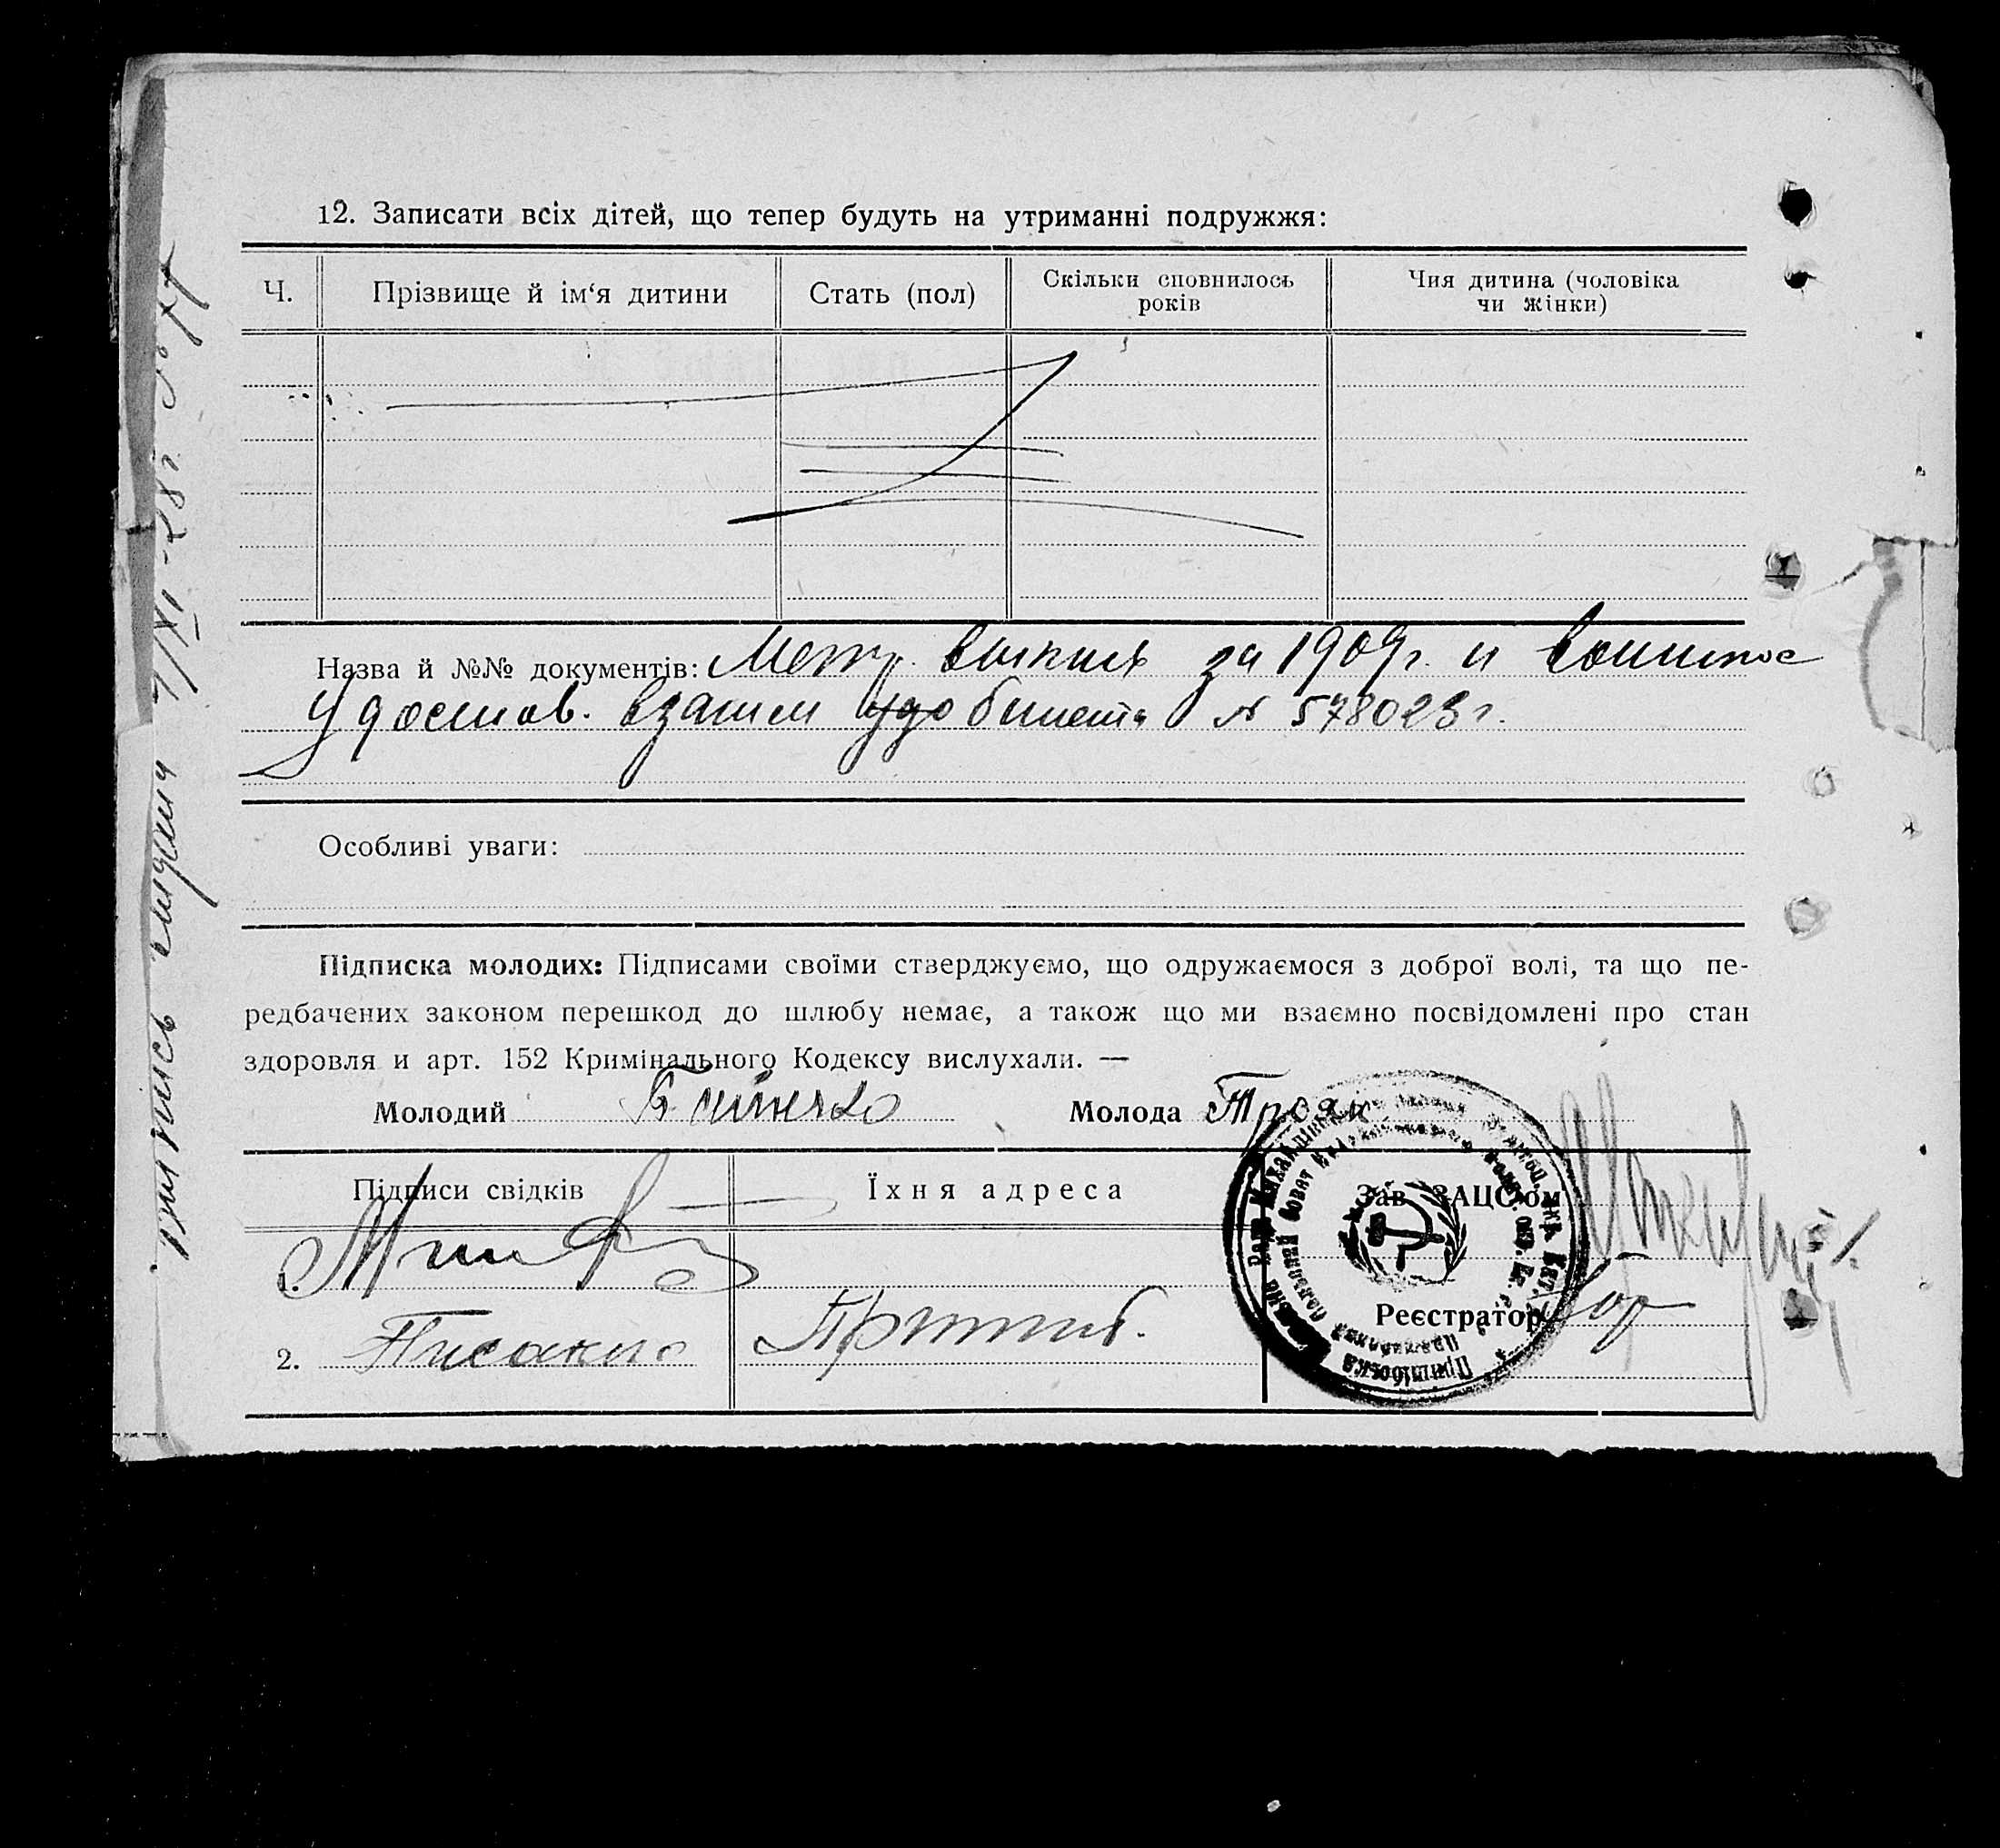 12. Записати всіх дітей, що тепер будуть на утриманні подружжя:
Ч.
Прізвище й ім‘я дитини
Стать (пол)
Скільки сповнилось
років
Чия дитина (чоловіка
чи жінки)
Назва й №№ документів: Метр. выпись за 1909 г. и воинское
Удостов. взамен удо билета № 578023 г.
Особливі уваги:
Підписка молодих: Підписами своїми стверджуємо, що одружаємося з доброї волі, та що пе-
редбачених законом перешкод до шлюбу немає, а також що ми взаємно посвідомлені про стан
здоровля и арт. 152 Кримінального Кодексу вислухали. —
Молодий
Молода Троян
Підписи свідків
Їхня адреса
Зав. ЗАЦС‘ом
1.
Реєстратор
2.